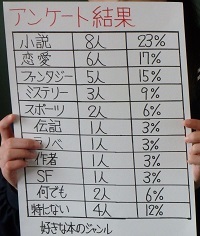 アンケート結果
小説 8人 23%
恋愛 6人 17%
ファンタジー 5人 15%
ミステリー 3人 9%
スポーツ 2人 6%
伝記 1人 3%
ラノベ 1人 3%
作者 1人 3%
SF 1人 3%
何でも 2人 6%
特にない 4人 12%
好きな本のジャンル